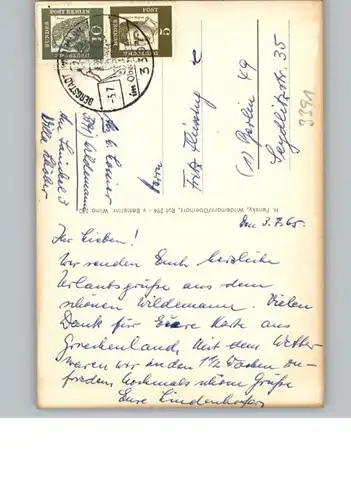 DEUTSCHE BUNDESPOST 10
DEUTSCHE BUNDESPOST 5
BERGSTADT
im Ober
-3.7.
Herrn
Fritz
(1) Berlin 49
Seydlitzstr. 35
3391
3391 Wildemann
H. Pensky, Wildemann/Oberharz, Ruf 294 - v Bestellnr. Wima 740
Den 3.7.65.
Ihr Lieben!
Wir senden Euch herzliche
Urlaubsgrüße aus dem
schönen Wildemann. Vielen
Dank für Euere Karte aus
Griechenland, Mit dem Wetter
waren wir in den 1 1/2 Wochen zu-
frieden Nochmals schöne Grüße
Eure Lindenhofer